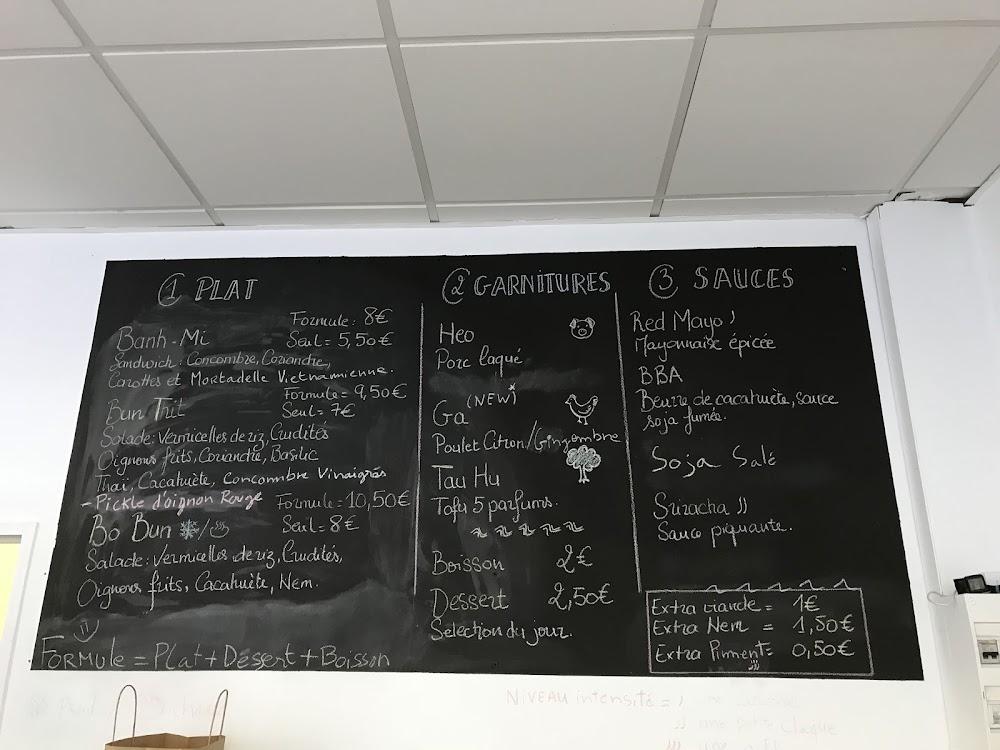 1 PLAT
Formule : 8€
Banh-Mi Seul = 5,50€
Sandwich : Concombre, Coriandre,
Carottes et Mortadelle Vietnamienne.
Formule = 9,50€
Bun Trit Seul = 7€
Salade : Vermicelles de riz, Crudités
Oignons frits, Coriandre, Basilic
Thai, Cacahuète, Concombre Vinaigrés
- Pickle d'oignon Rouge
Formule = 10,50€
Bo Bun / Seul = 8€
Salade : Vermicelles de riz, Crudités,
Oignons frits, Cacahuète, Nem.
FORMULE = Plat + Dessert + Boisson
2 GARNITURES
Heo
Porc laqué
(NEW)
Ga
Poulet Citron/Gingembre
Tau Hu
Tofu 5 parfums.
Boisson 2€
Dessert 2,50€
Selection du jour.
3 SAUCES
Red Mayo
Mayonnaise épicée
BBA
Beurre de cacahuète, sauce
soja fumée.
Soja Salé
Sriracha
Sauce piquante.
Extra viande = 1€
Extra Nem = 1,50€
Extra Piment = 0,50€
NIVEAU intensité =
une petite claque